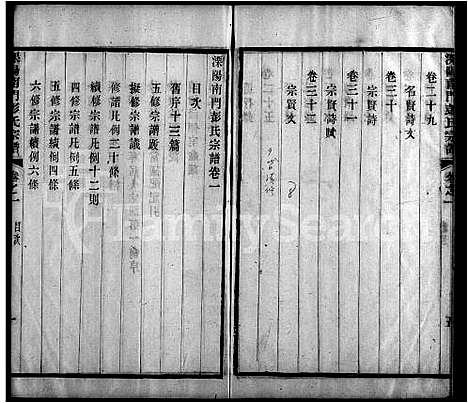 卷二十九
名賢詩文
卷三十
宗賢詩賦
卷三十一
宗賢詩
卷三十二
宗賢文
溧陽南門彭氏宗譜卷一
目次
舊序十三篇
五修宗譜跋
擬修宗譜議
修譜凡例三十條
續修宗譜凡例十二則
四修宗譜凡例五條
五修宗譜續例六條
六修宗譜續例六條
溧陽南門彭氏宗譜
卷之一
目次
一
FamilySearch